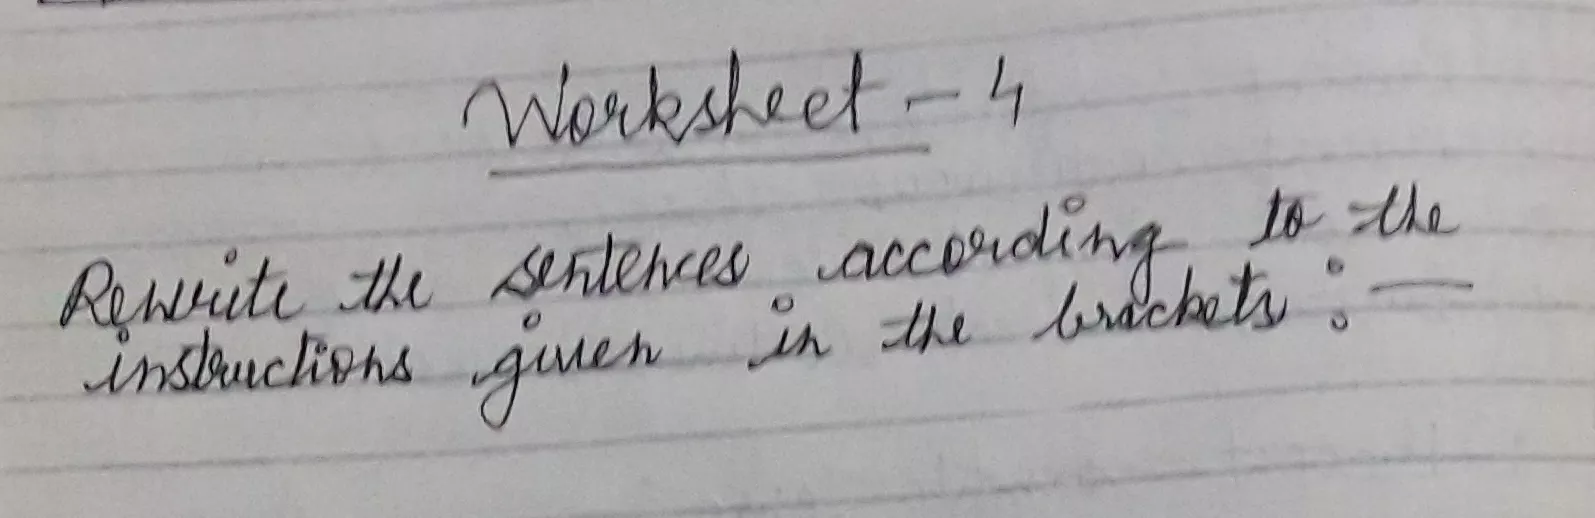 Worksheet - 4
Rewrite the sentences according to the
instructions given in the brackets :-